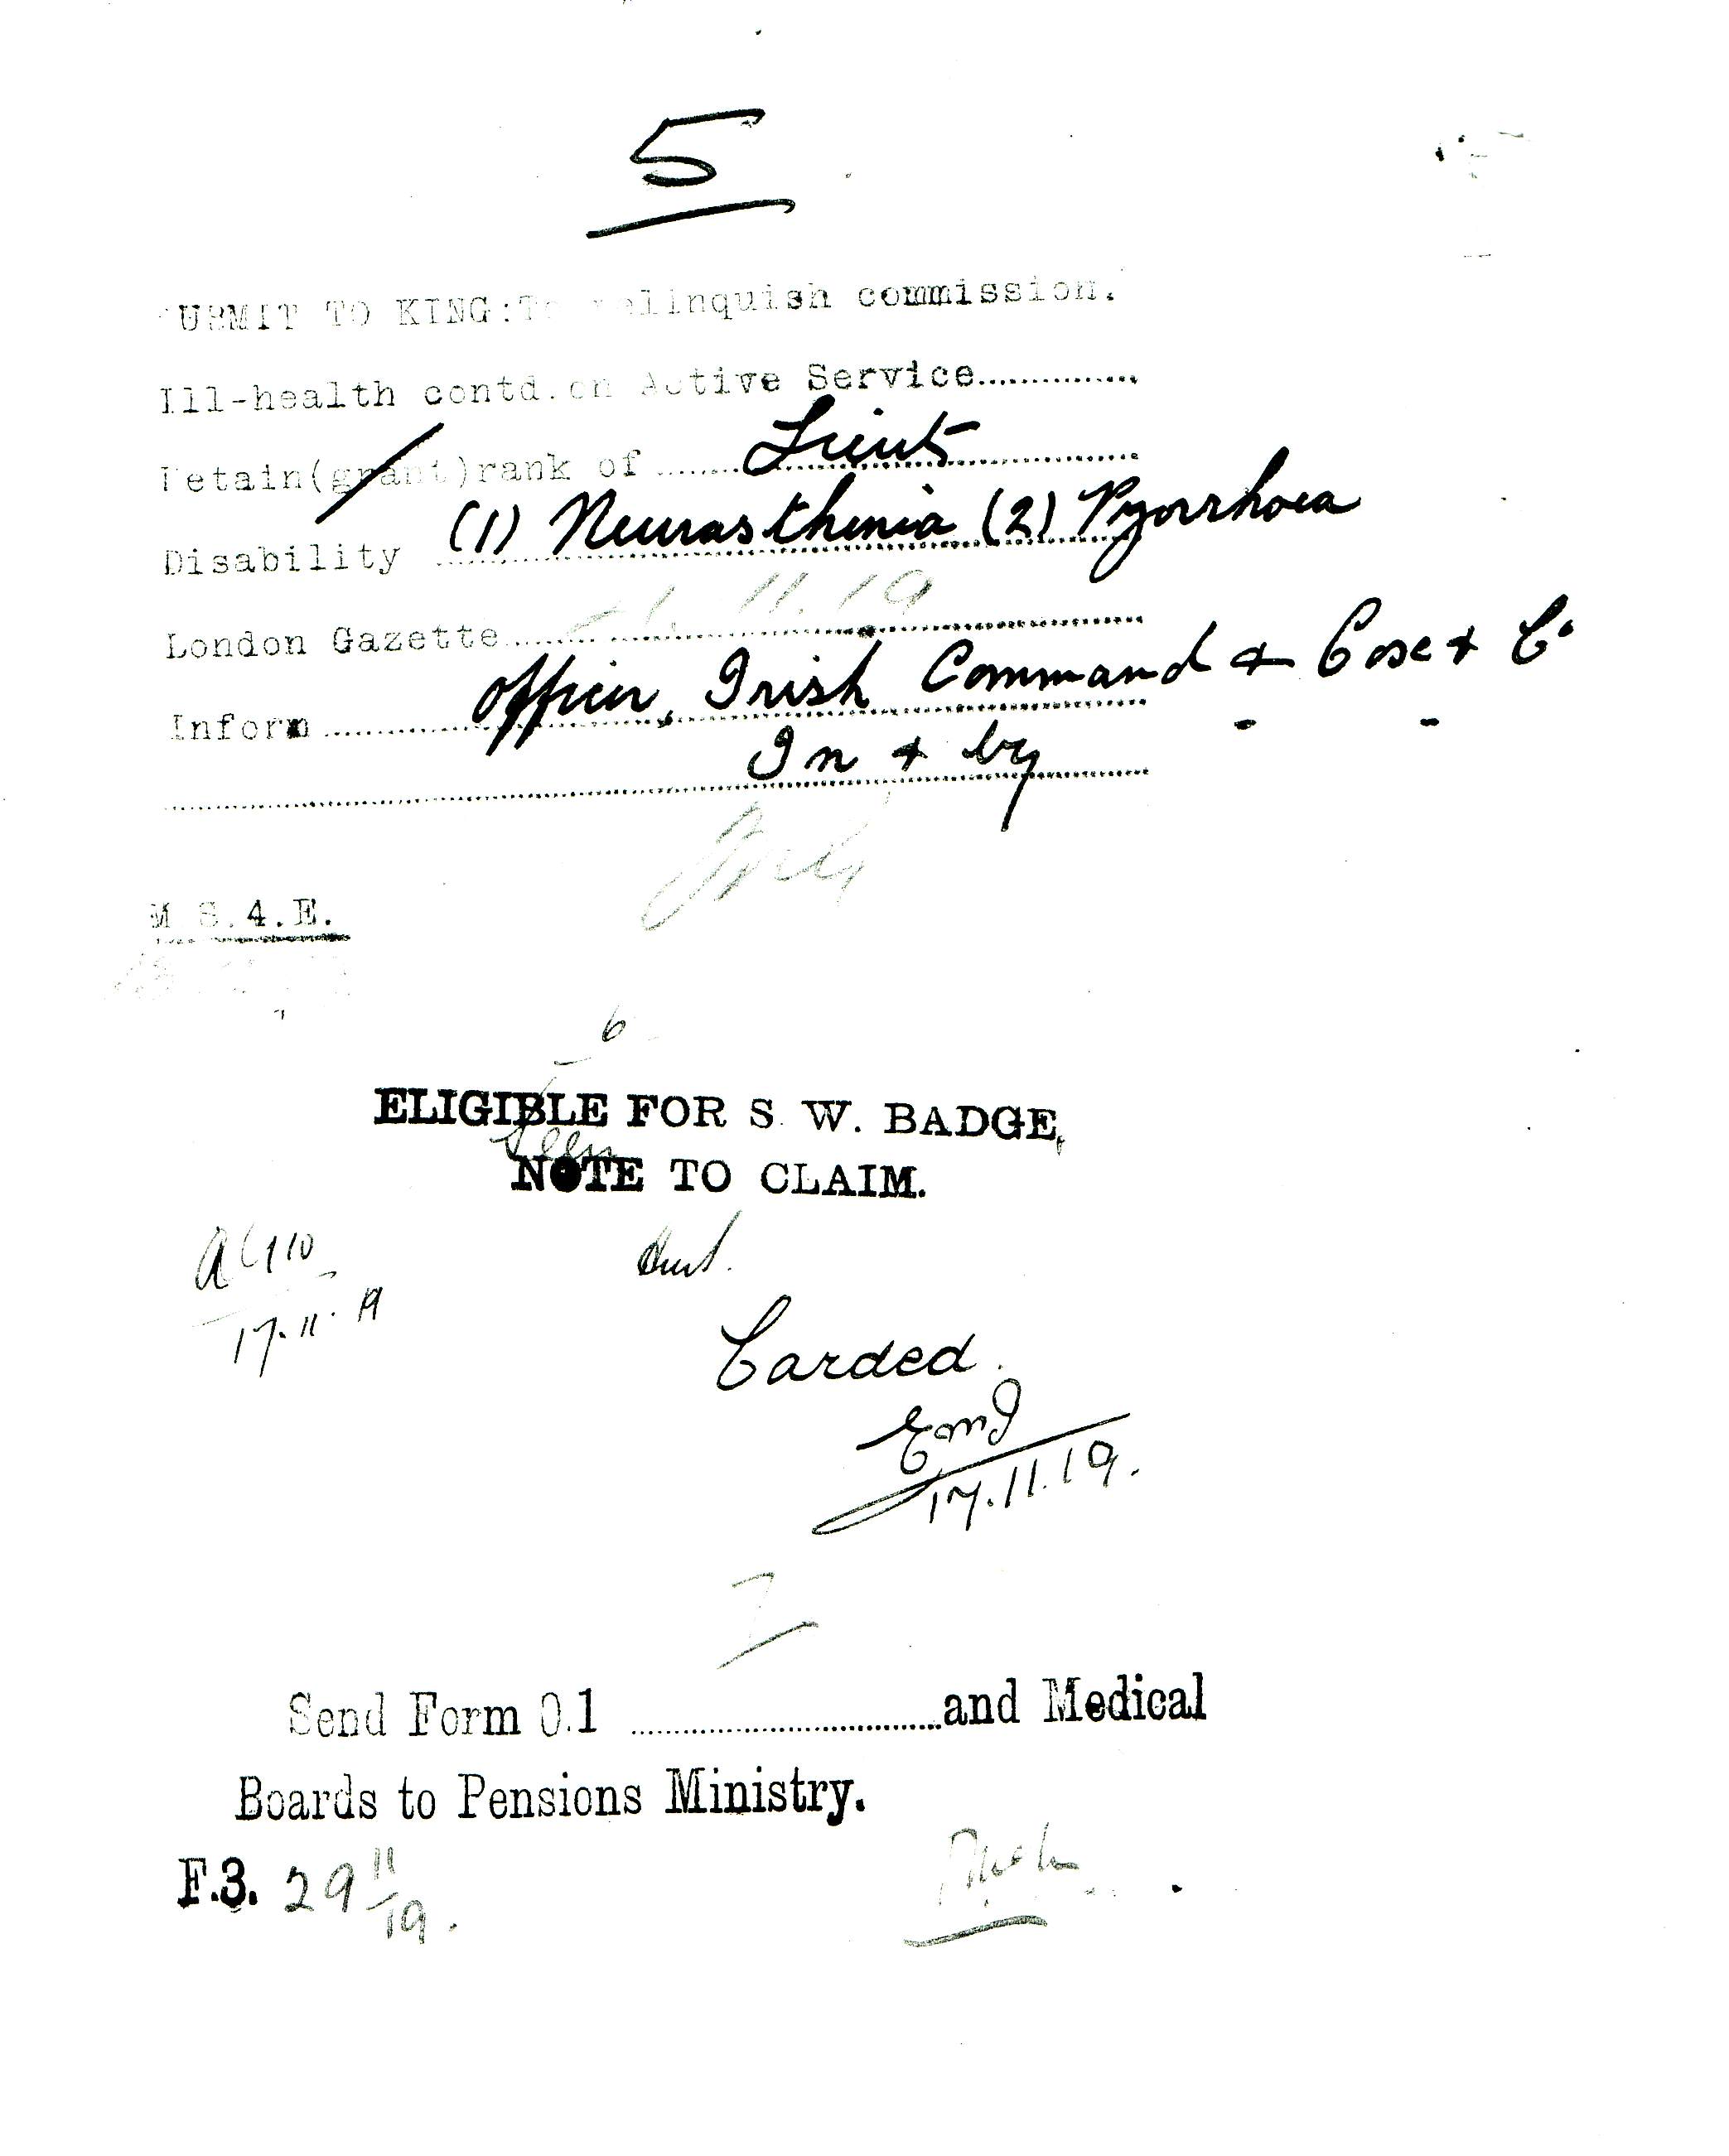 5
UBMIT TO KING: To relinquish commission.
Ill-health contd. on Active Service
Retain (grant) rank of Lieut
Disability (1) Neurasthenia (2) Pyorrhoea
London Gazette 11.19
Inform Officer, Irish Command & Cox & Co
In & by
M S.4.E.
6
ELIGIBLE FOR S. W. BADGE,
Seen
NOTE TO CLAIM.
17.11.19
Carded.
17.11.19.
7
Send Form 0.1 and Medical
Boards to Pensions Ministry.
F.3. 29 11/19.